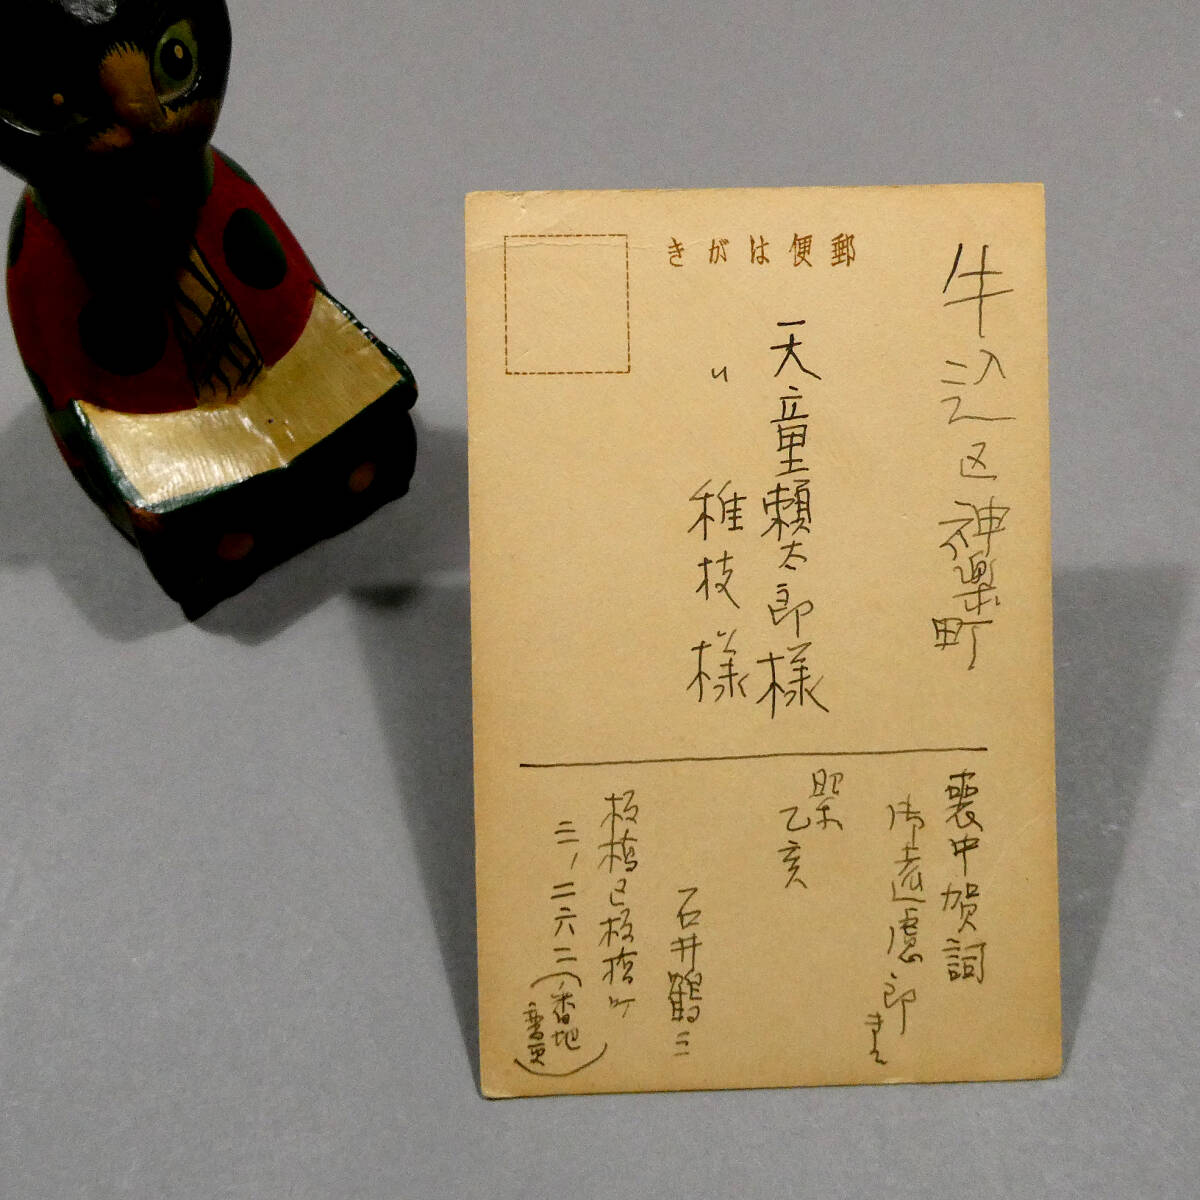 郵便はがき
牛込区神楽町
天童頼太郎様
〃 稚枝様
喪中賀詞
御遠慮
昭末
乙亥
石井鶴三
板橋区板橋町
三ノ二六二(番地
変更)